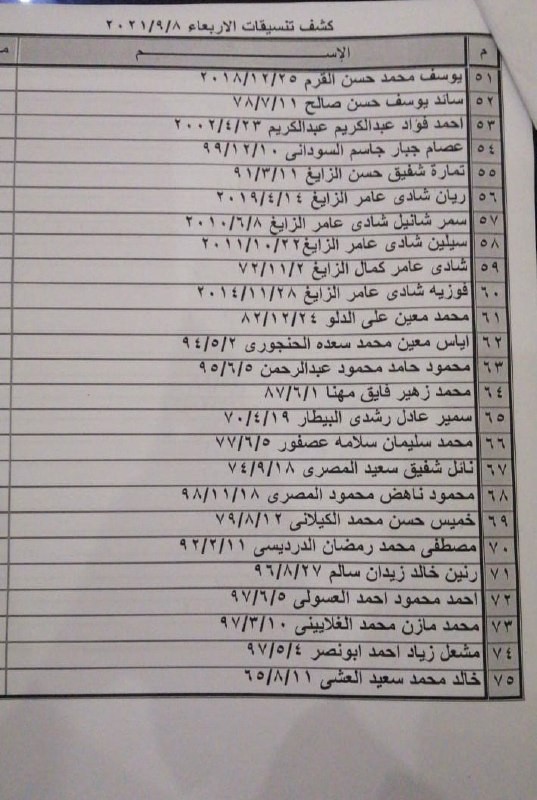 كشف تنسيقات الاربعاء ٢٠٢١/٩/٨
م الإســـم
٥١ يوسف محمد حسن القرم ٢٠١٨/١٢/٢٥
٥٢ سائد يوسف حسن صالح ٧٨/٧/١١
٥٣ احمد فؤاد عبدالكريم عبدالكريم ٢٠٠٢/٤/٢٣
٥٤ عصام جبار جاسم السودانى ٩٩/١٢/١٠
٥٥ تمارة شفيق حسن الزايغ ٩١/٣/١١
٥٦ ريان شادى عامر الزايغ ٢٠١٩/٤/١٤
٥٧ سمر شانيل شادى عامر الزايغ ٢٠١٠/٦/٨
٥٨ سيلين شادى عامر الزايغ٢٠١١/١٠/٢٢
٥٩ شادى عامر كمال الزايغ ٧٢/١١/٢
٦٠ فوزيه شادى عامر الزايغ ٢٠١٤/١١/٢٨
٦١ محمد معين على الدلو ٨٢/١٢/٢٤
٦٢ اياس معين محمد سعده الحنجورى ٩٤/٥/٢
٦٣ محمود حامد محمود عبدالرحمن ٩٥/٦/٥
٦٤ محمد زهير فايق مهنا ٨٧/٦/١
٦٥ سمير عادل رشدى البيطار ٧٠/٤/١٩
٦٦ محمد سليمان سلامه عصفور ٧٧/٦/٥
٦٧ نائل شفيق سعيد المصرى ٧٤/٩/١٨
٦٨ محمود ناهض محمود المصرى ٩٨/١١/١٨
٦٩ خميس حسن محمد الكيلانى ٧٩/٨/١٢
٧٠ مصطفى محمد رمضان الدرديسى ٩٢/٢/١١
٧١ رنين خالد زيدان سالم ٩٦/٨/٢٧
٧٢ احمد محمود احمد العسولى ٩٧/٦/٥
٧٣ محمد مازن محمد الغلايينى ٩٧/٣/١٠
٧٤ مشعل زياد احمد ابونصر ٩٧/٥/٤
٧٥ خالد محمد سعيد العشى ٦٥/٨/١١